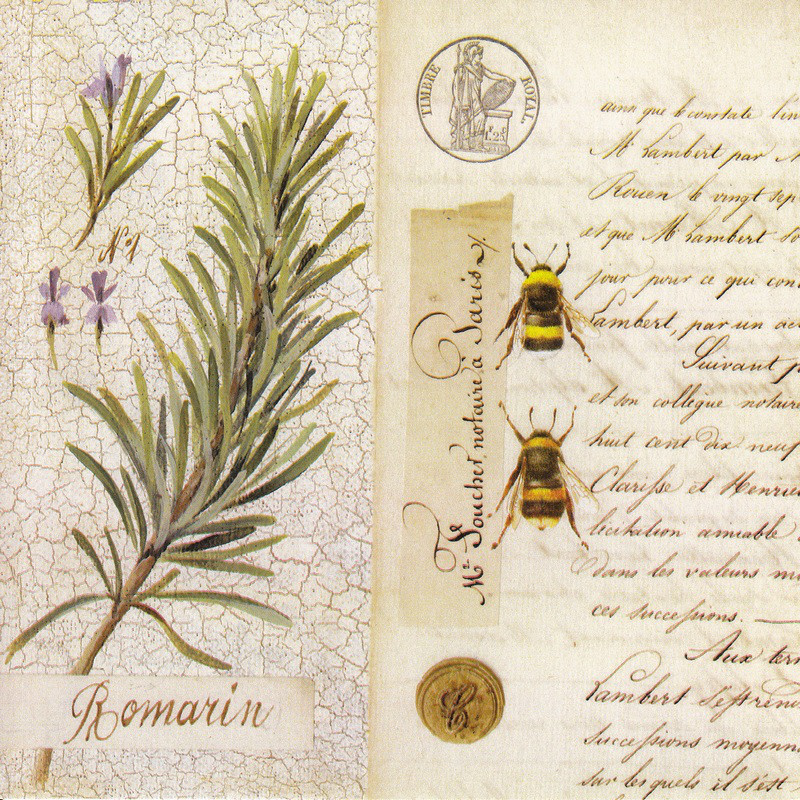 Nº 1
Romarin
TIMBRE ROYAL.
1.25
Mr. Foucher notaire à Paris
ainsi que le constate l'in
Mr Lambert par M
Rouen le vingt sep
et que Mr Lambert
jour pour ce qui con
Lambert, par un ac
Suivant p
et son collègue notaire
huit cent dix neuf
Clarisse et Henrie
licitation amiable
dans les valeurs m
ces successions.
Aux ter
Lambert
successions moyenn
sur lesquels il s'est